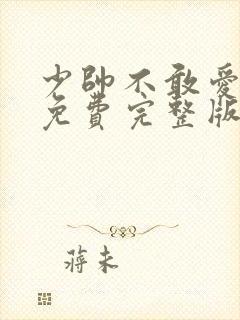 少帥不敢愛
免費完整版
蔣未